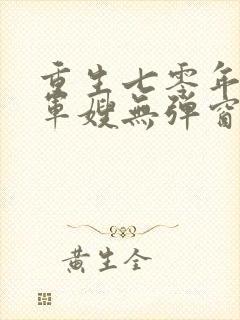 重生七零年
軍嫂無彈窗
黃生全